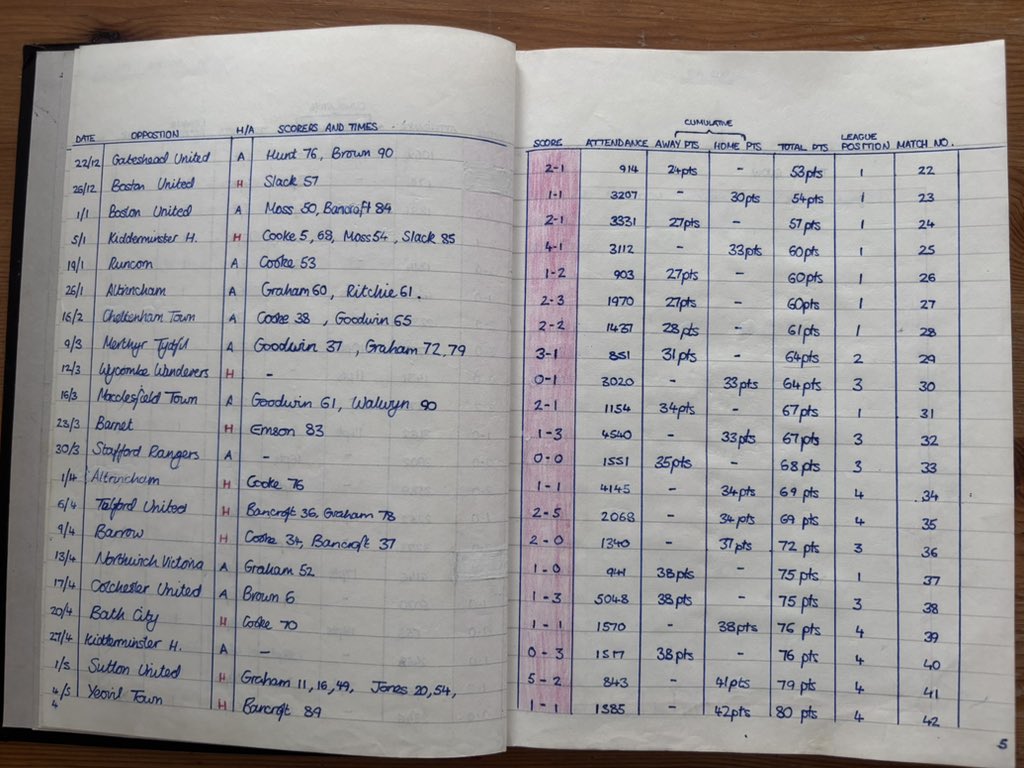 CUMULATIVE
DATE OPPOSTION H/A SCORERS AND TIMES SCORE ATTENDANCE AWAY PTS HOME PTS TOTAL PTS LEAGUE POSITION MATCH NO.
22/12 Gateshead United A Hunt 76, Brown 90 2-1 914 24pts - 53pts 1 22
26/12 Boston United H Slack 57 1-1 3207 - 30pts 54pts 1 23
1/1 Boston United A Moss 50, Bancroft 89 2-1 3331 27pts - 57pts 1 24
5/1 Kidderminster H. H Cooke 5, 68, Moss 54, Slack 85 4-1 3112 - 33pts 60pts 1 25
19/1 Runcorn A Cooke 53 1-2 903 27pts - 60pts 1 26
26/1 Altrincham A Graham 60, Ritchie 61. 2-3 1970 27pts - 60pts 1 27
16/2 Cheltenham Town A Cooke 38, Goodwin 65 2-2 1437 28pts - 61pts 1 28
9/3 Merthyr Tydfil A Goodwin 37, Graham 72, 79 3-1 851 31pts - 64pts 2 29
12/3 Wycombe Wanderers H - 0-1 3020 - 33pts 64pts 3 30
16/3 Macclesfield Town A Goodwin 61, Walwyn 90 2-1 1154 34pts - 67pts 1 31
23/3 Barnet H Emson 83 1-3 4540 - 33pts 67pts 3 32
30/3 Stafford Rangers A - 0-0 1551 35pts - 68pts 3 33
1/4 Altrincham H Cooke 76 1-1 4145 - 34pts 69 pts 4 34
6/4 Telford United H Bancroft 36, Graham 78 2-5 2068 - 34pts 69 pts 4 35
9/4 Barrow H Cooke 34, Bancroft 37 2-0 1340 - 37pts 72 pts 3 36
13/4 Northwich Victoria A Graham 52 1-0 941 38pts - 75pts 1 37
17/4 Colchester United A Brown 6 1-3 5048 38pts - 75 pts 3 38
20/4 Bath City H Cooke 70 1-1 1570 - 38pts 76 pts 4 39
27/4 Kidderminster H. A - 0-3 1517 38pts - 76 pts 4 40
1/5 Sutton United H Graham 11, 16, 49, Jones 20, 54, 5-2 843 - 41pts 79 pts 4 41
4/5 Yeovil Town H Bancroft 89 1-1 1385 - 42pts 80 pts 4 42
4
5